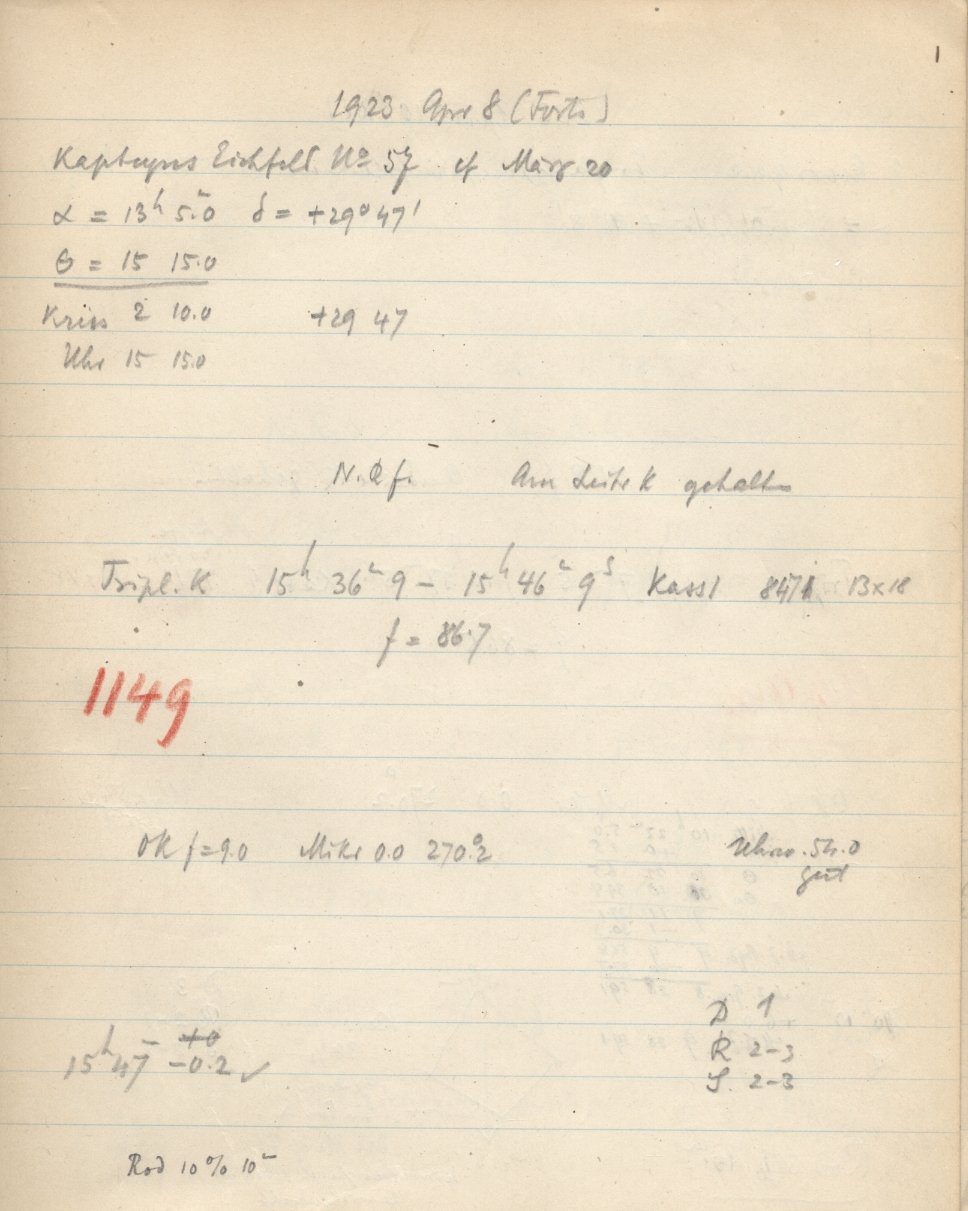 1
1923 Apr 8 (Forts)
Kapteyns Eichfeld No 57 cf März 20
α = 13h 5m.0 δ = +29° 47'
θ = 15 15.0
Kreis 2 10.0 +29 47
Uhr 15 15.0
N. f. Am Leitr K gehalten
Tripl. K 15h 36m 9 – 15h 46m 9s Kass 1 8471 13×18
f = 86.7
1149
OK f=9.0 Mikr 0.0 270°.2 Uhrw. 54.0
gut
+0
D 1
15h 47m –0.2 ✓
R 2–3
S. 2–3
Rod 10% 10m